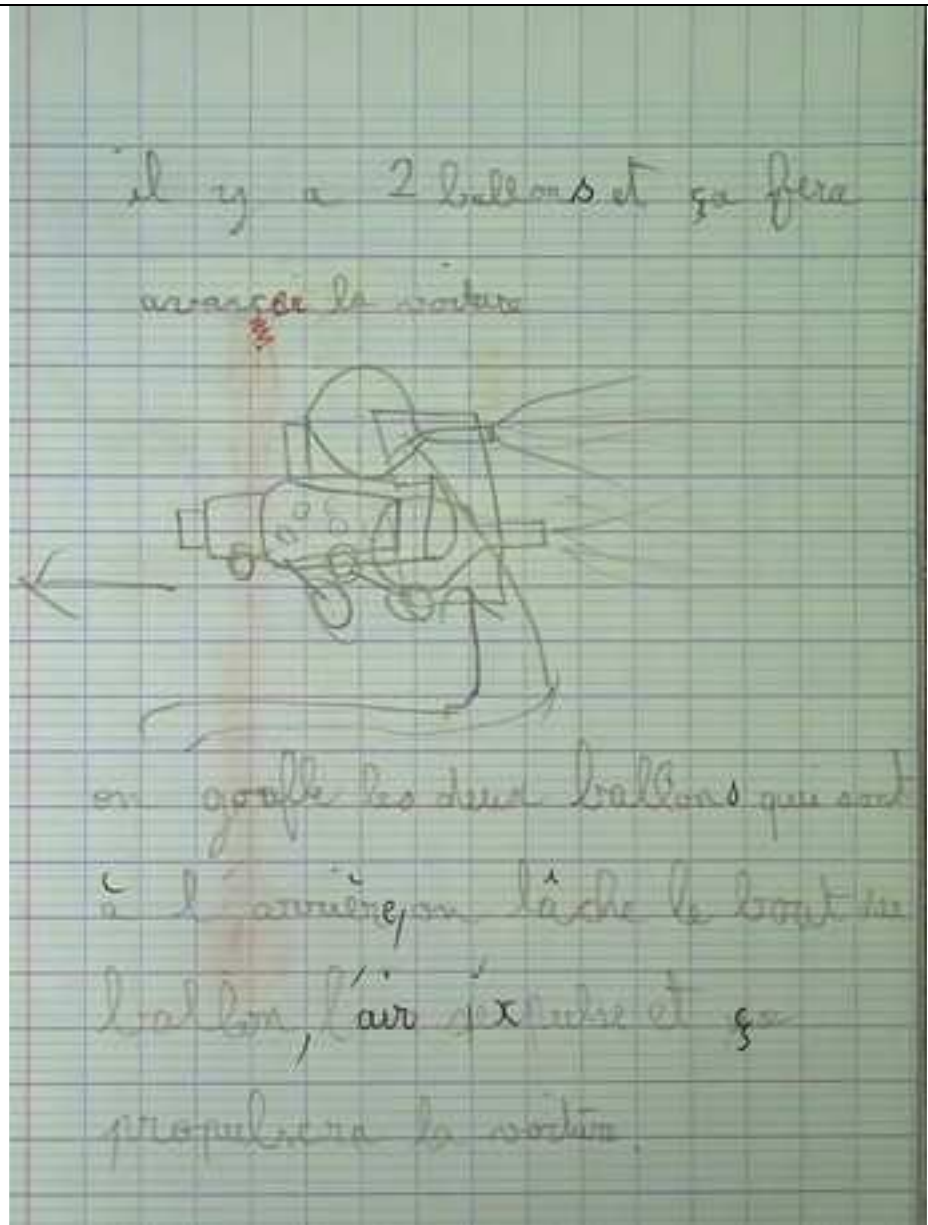 il y a 2 ballons et ça fera
avancer la voiture
on gonfle les deux ballons qui sont
à l'arrière, on lâche le bout du
ballon, l'air s'expulse et ça
propulsera la voiture.